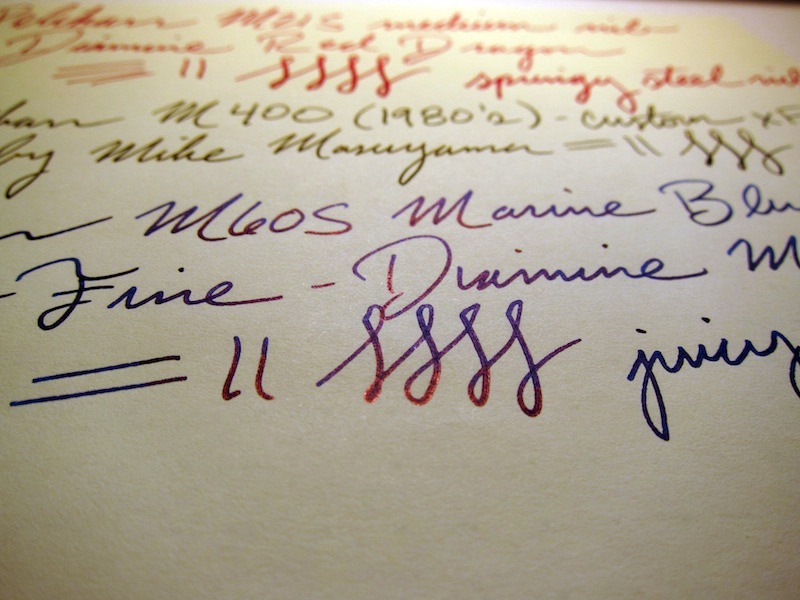 Pelikan M215 medium nib
Diamine Red Dragon
springy steel nib
kan M400 (1980's) - custom XF
by Mike Masuyama
M605 Marine Blu
- Fine - Diamine M
juicy